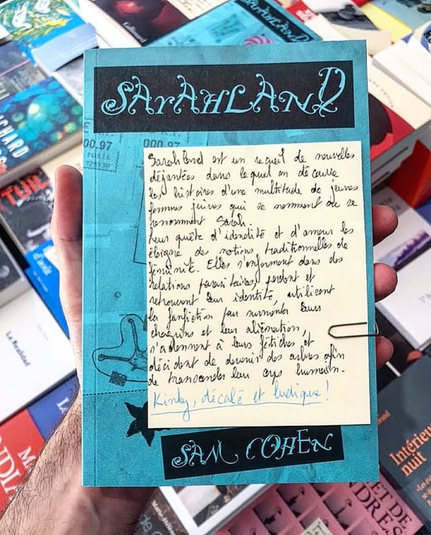 SARAHLAND
00.97
00.97
Sarahland est un recueil de nouvelles
déjantées dans lequel on découvre
les histoires d'une multitude de jeunes
femmes juives qui se nomment ou se
renomment Sarah.
Leur quête d'identité et d'amour les
éloigne des notions traditionnelles de
féminité. Elles s'enferment dans des
relations parasitaires, perdent et
retrouvent leur identité, utilisent
la fanfiction pour surmonter leurs
chagrins et leur aliénation,
s'adonnent à leurs fétiches et
décident de devenir des arbres afin
de transcender leur corps humain.
Kinky, décalé et ludique!
SAM COHEN
Intérieur
nuit